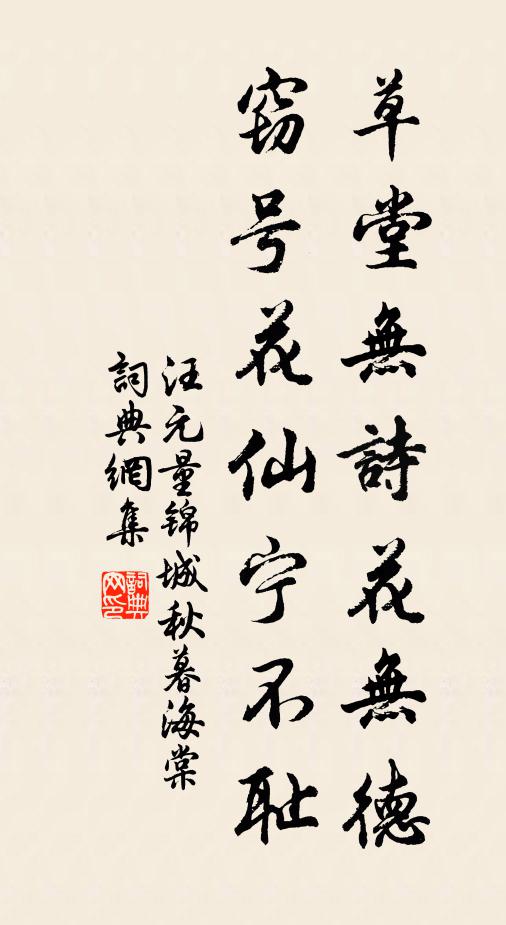 草堂無詩花無德
窃号花仙宁不耻
汪元量锦城秋暮海棠
詞典網集
詞典网印